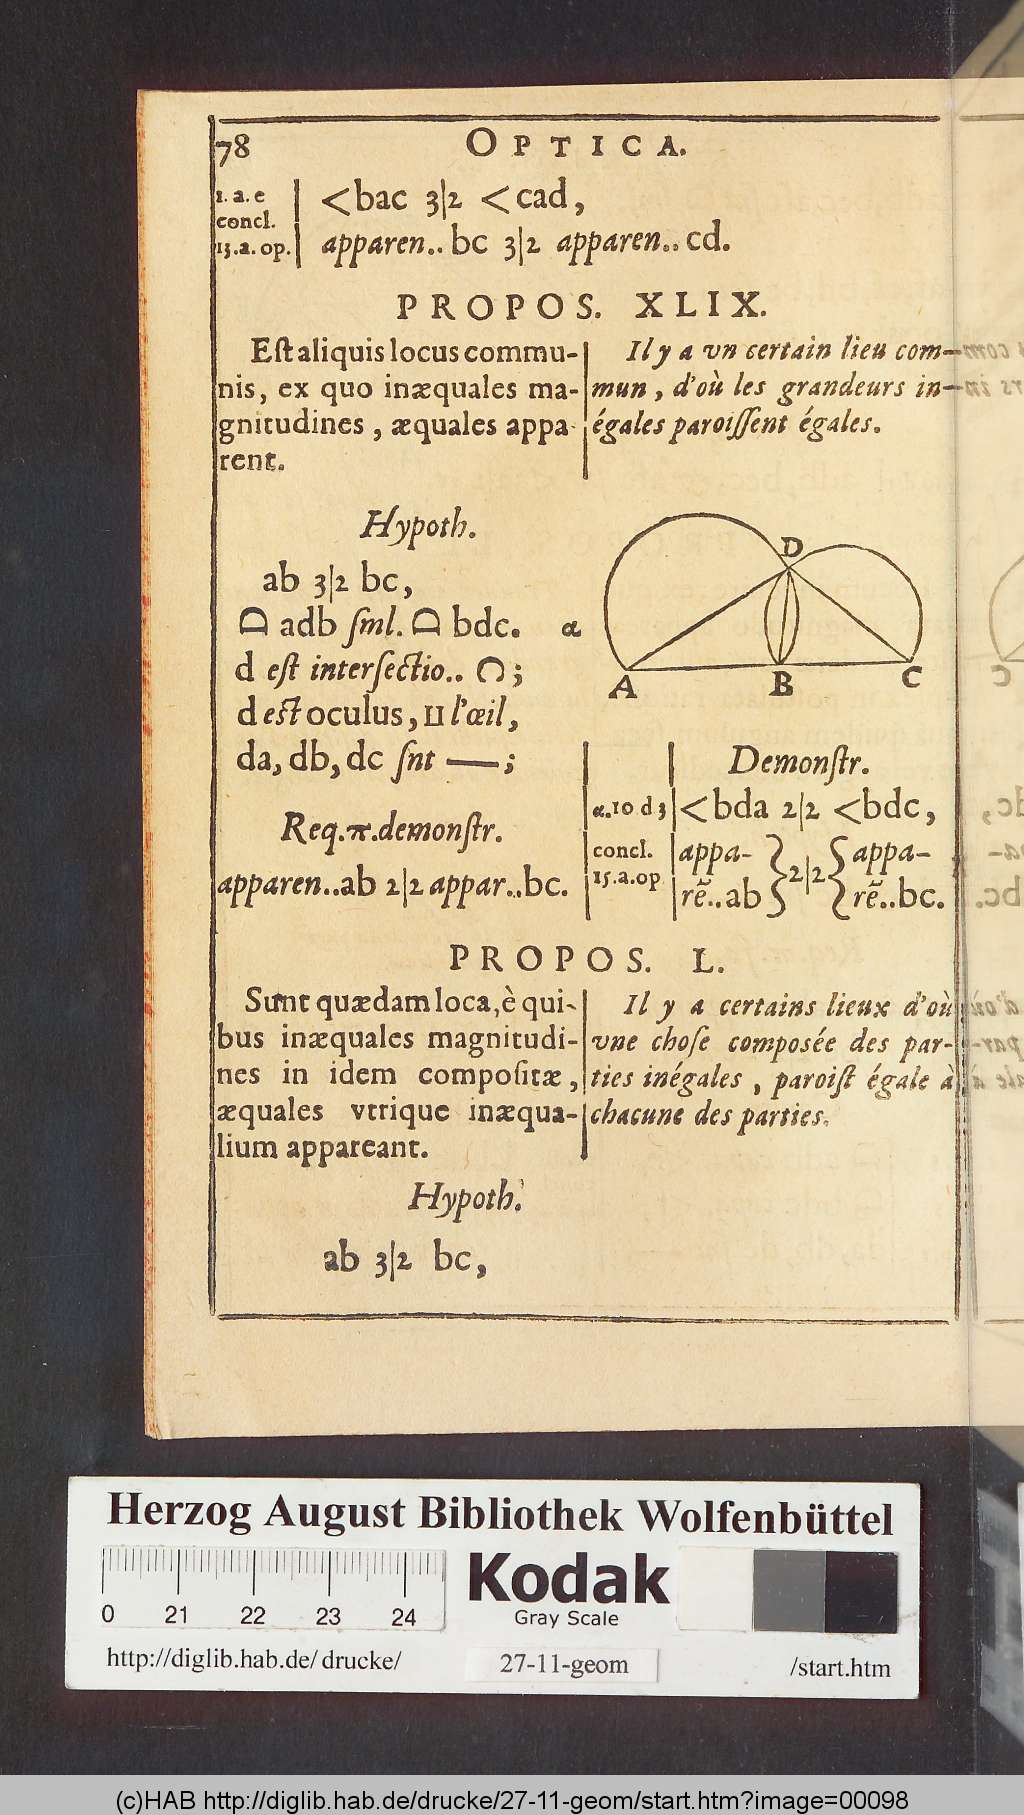 78 OPTICA.
1. a. e | <bac 3|2 <cad,
concl.
15.a.op. | apparen.. bc 3|2 apparen.. cd.
PROPOS. XLIX.
Est aliquis locus commu-
nis, ex quo inæquales ma-
gnitudines, æquales appa
rent.
Il y a vn certain lieu com-
mun, d'où les grandeurs in-
égales paroiſſent égales.
Hypoth.
ab 3|2 bc,
adb ſml. bdc. α
d eſt interſectio.. ;
d eſt oculus, l'œil,
da, db, dc ſnt — ;
Req. π. demonſtr.
apparen..ab 2|2 appar..bc.
D
A B C
Demonſtr.
α.10 d 3 | <bda 2|2 <bdc,
concl. | appa- } 2|2 { appa-
15.a.op | rẽ..ab } { rẽ..bc.
PROPOS. L.
Sunt quædam loca, è qui-
bus inæquales magnitudi-
nes in idem compoſitæ,
æquales vtrique inæqua-
lium appareant.
Il y a certains lieux d'où
vne choſe compoſée des par-
ties inégales, paroiſt égale à
chacune des parties.
Hypoth.
ab 3|2 bc,
Herzog August Bibliothek Wolfenbüttel
0 21 22 23 24
Kodak
Gray Scale
http://diglib.hab.de/drucke/ 27-11-geom /start.htm
(c)HAB http://diglib.hab.de/drucke/27-11-geom/start.htm?image=00098